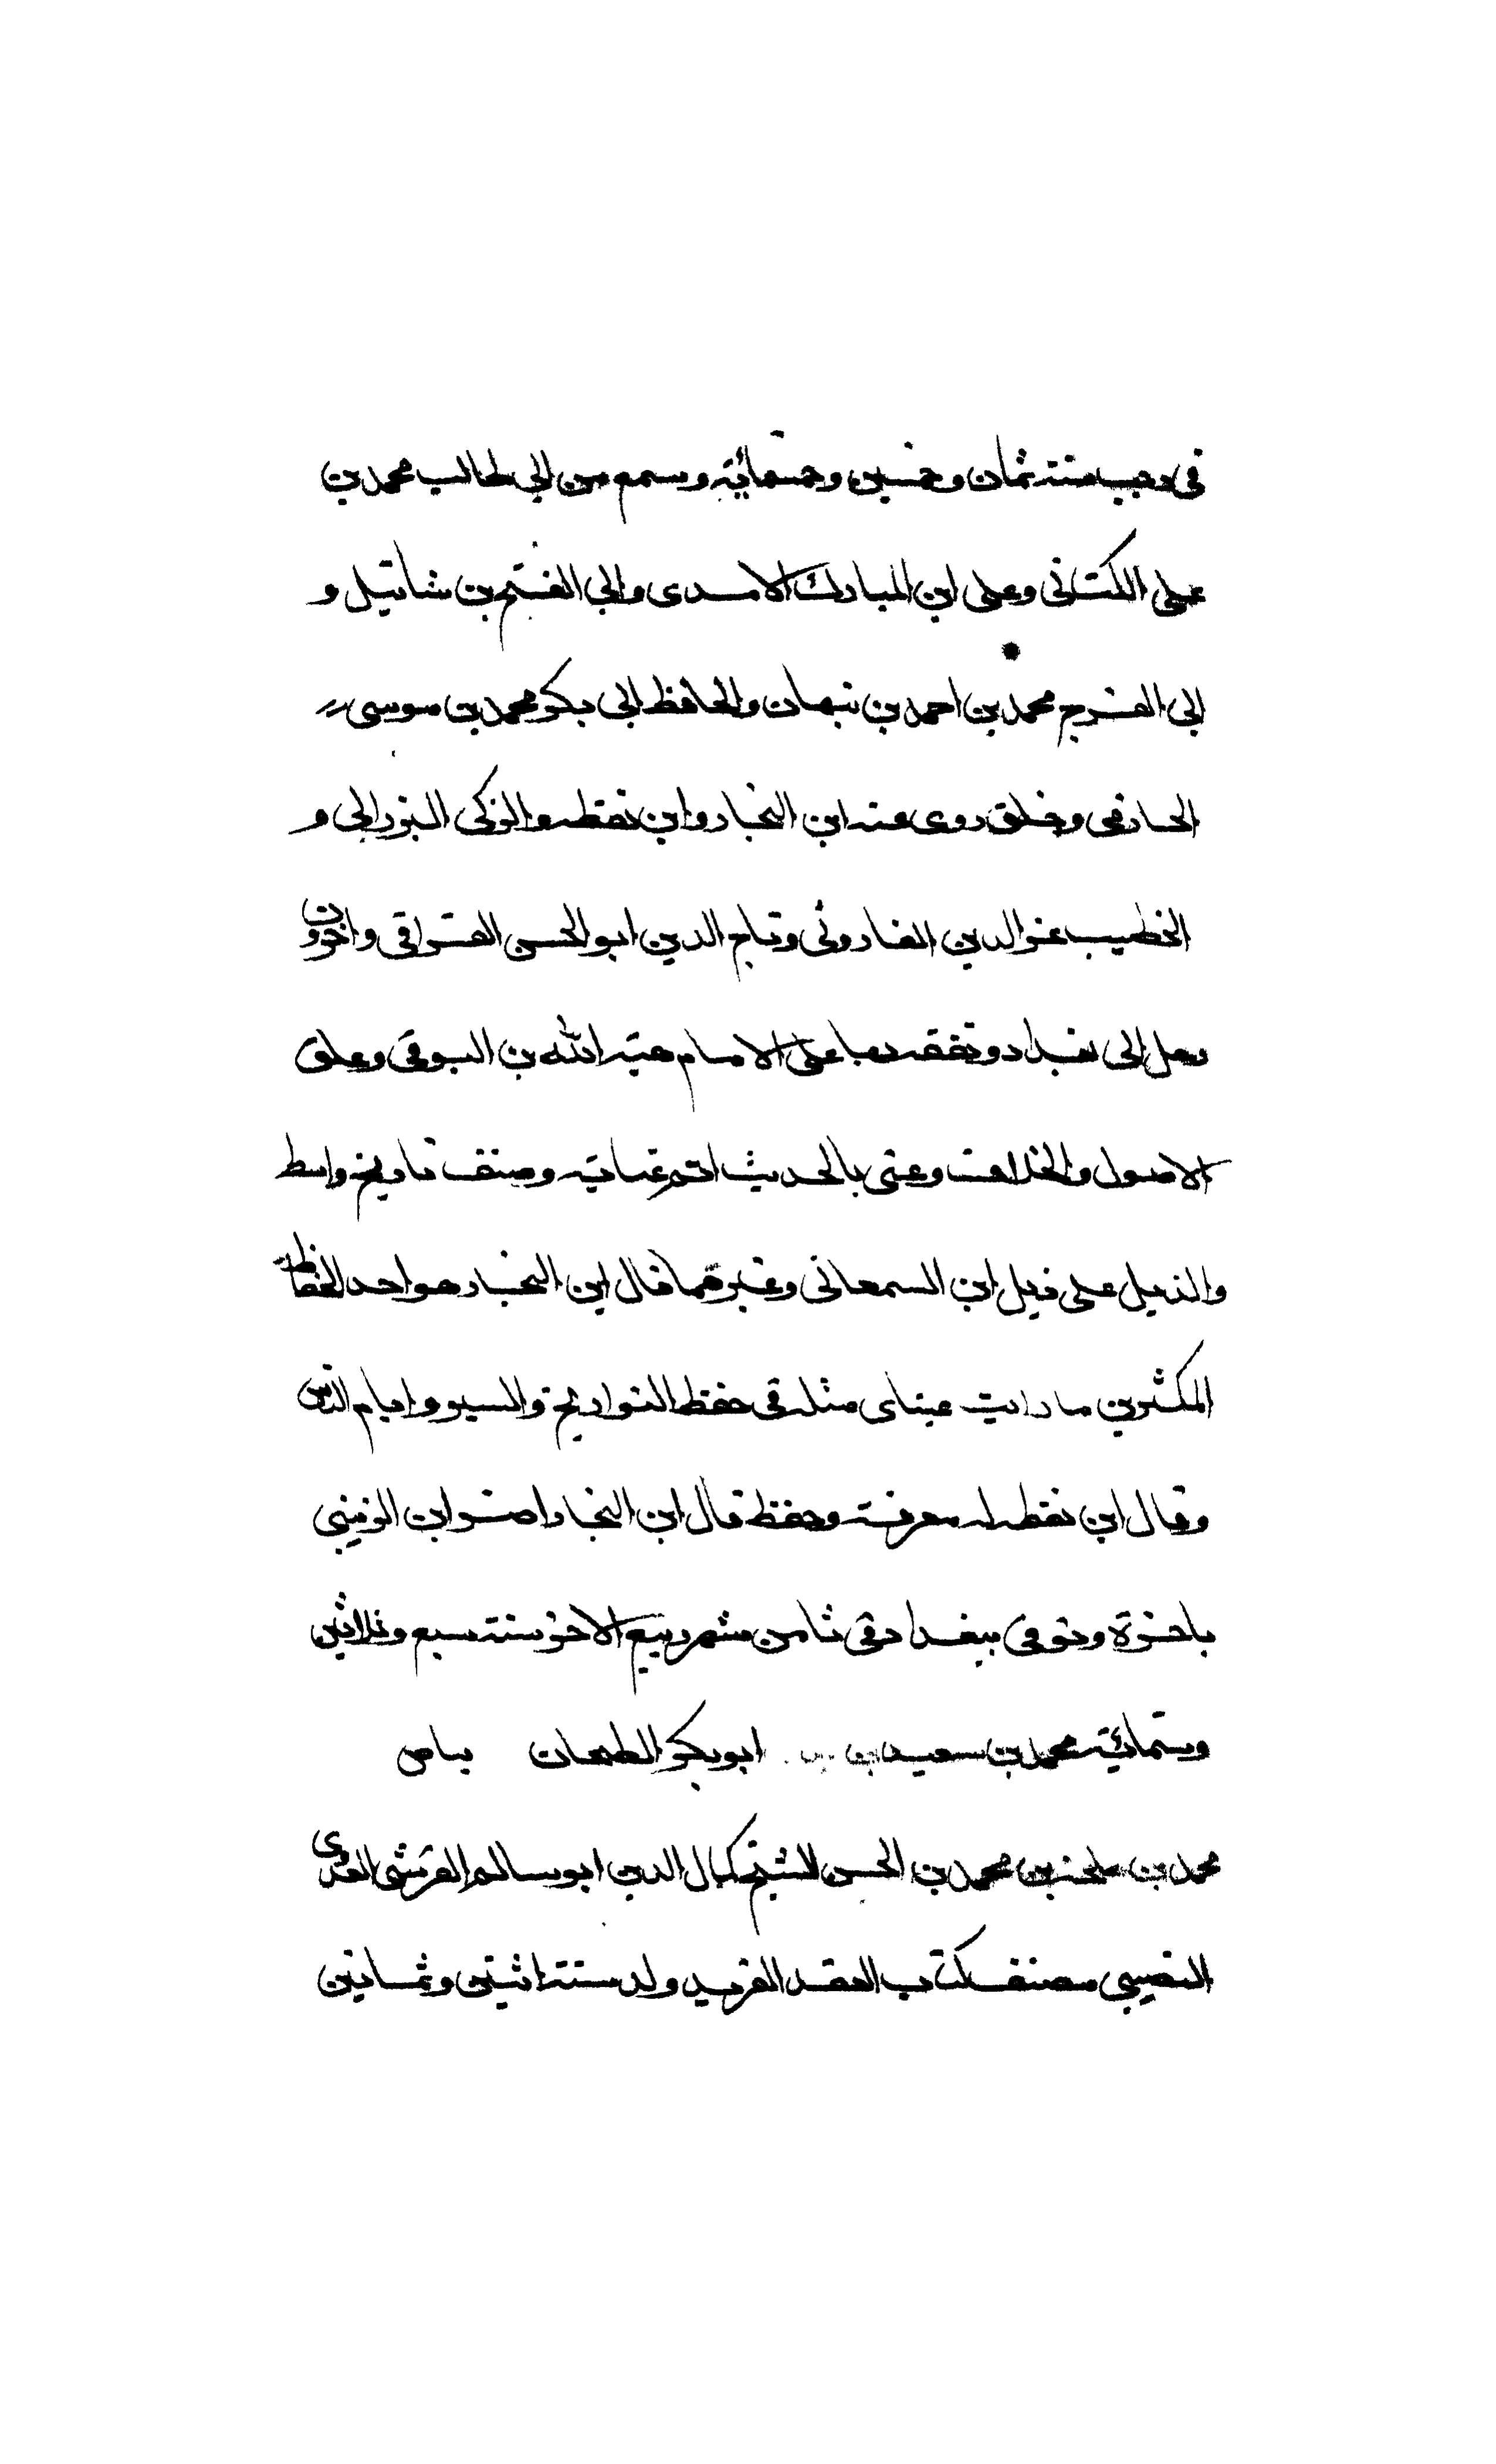 في رجب سنة ثمان وخمسين وخمسمائة وسمع من ابي طالب محمد بن
على الكتاني وعلى ابن المبارك الامدى وابي الفتح بن شاتيل و
ابي الفرج محمد بن احمد بن نبهان والحافظ ابي بكر محمد بن موسى
الحازمى وخلق روى عنه ابن النجار وابن نقطه والزكى البزرالى و
الخطيب عز الدين الفاروثي وتاج الدين ابو الحسن الغرافي واخرون
رحل الى بغداد وتفقه بها على الامام هبة الله بن البوقى وعلق
الاصول والخلاف وعنى بالحديث اتم عناية وصنف تاريخ واسط
والذيل على ذيل ابن السمعاني وغيرهما قال ابن النجار هو احد الحفاظ
المكثرين ما رايت عيناى مثله في حفظ التواريخ والسير وايام الناس
وقال ابن نقطه له معرفة وحفظ قال ابن النجار اضر ابن الدبيثي
باخرة وتوفى ببغداد في ثامن شهر ربيع الاخر سنة سبع وثلاثين
وستمائة محمد بن سعيد بن ابو بكر الطحان بياض
محمد بن طلحة بن محمد بن الحسن الشيخ كمال الدين ابو سالم القرشي العدوى
النصيبي مصنف كتاب العقد الفريد ولد سنة اثنتين وثمانين